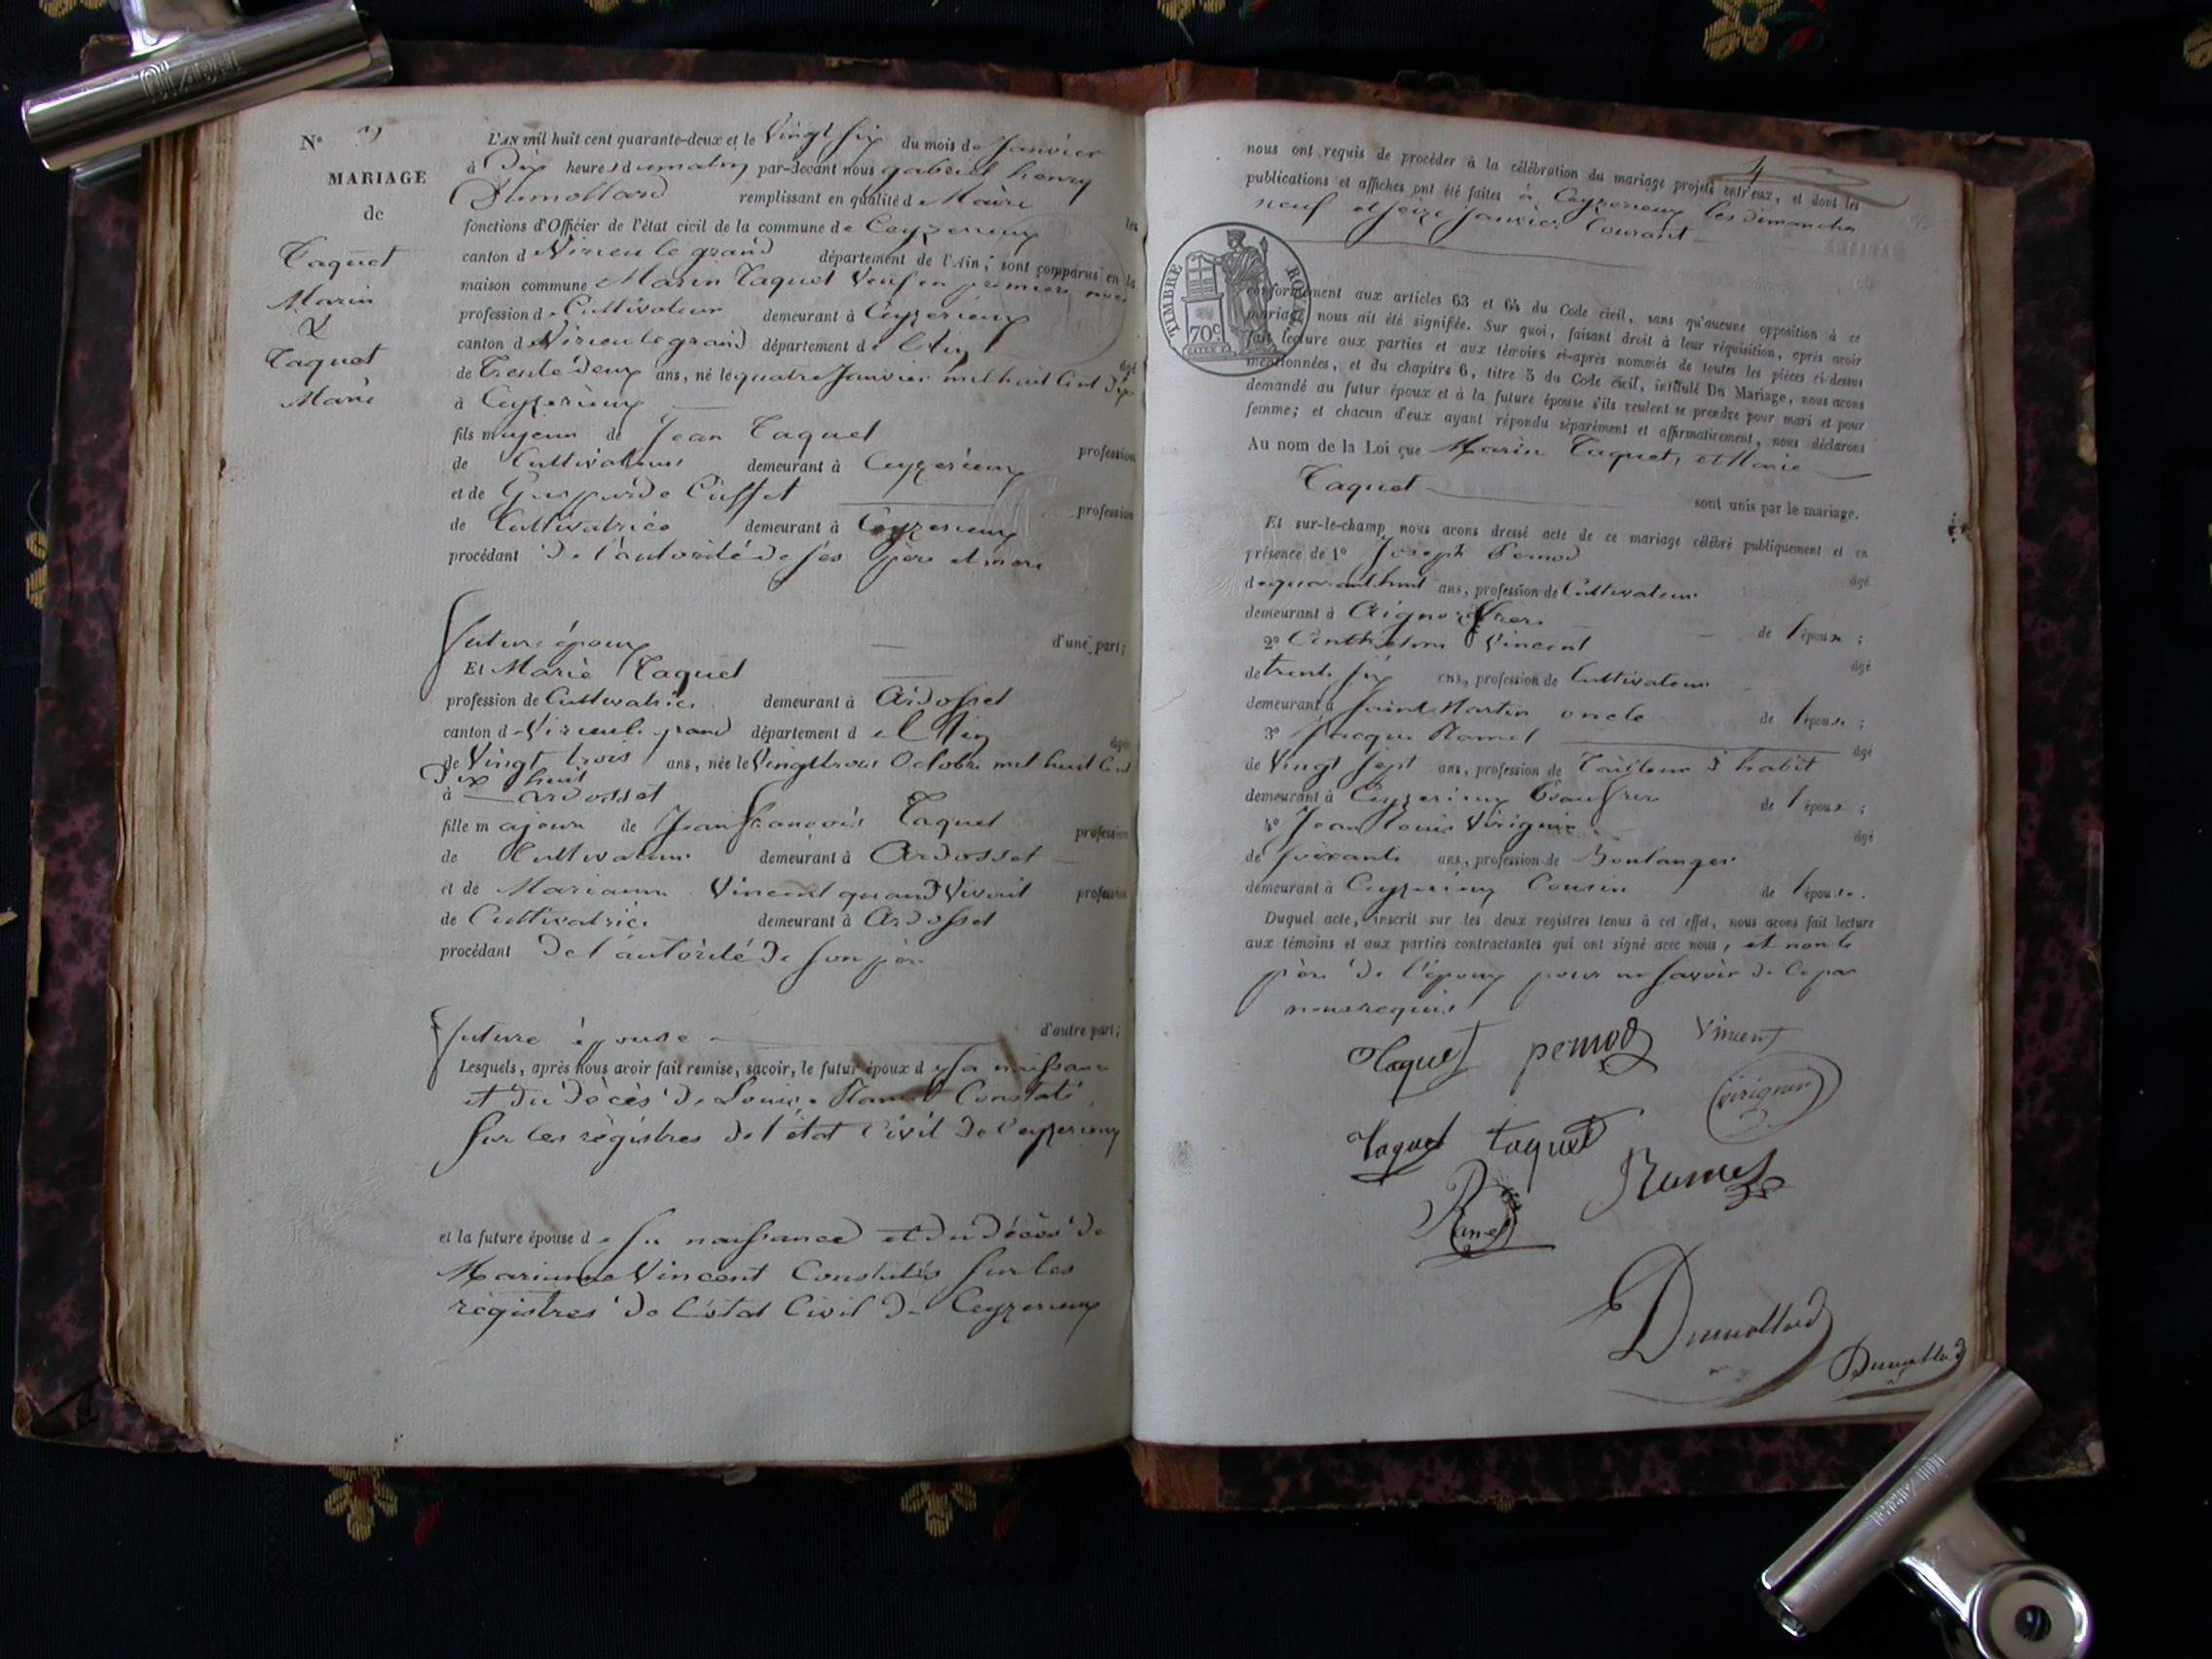 N°
MARIAGE
de
Taquet
Marin
&
Taquet
Marie
L'AN mil huit cent quarante-deux et le Vingt six du mois de Janvier
à Dix heures du matin par-devant nous gabriel henry
Dumollard remplissant en qualité de Maire les
fonctions d'Officier de l'état civil de la commune de Ceyzerieux
canton d Virieu le grand département de l'Ain; sont comparus en la
maison commune Marin Taquet Veuf en premiers noces
profession de Cultivateur demeurant à Ceyzerieux
canton d Virieu le grand département de l'Ain âgé
de Trente Deux ans, né le quatre Janvier mil huit Cent Dix
à Ceyzerieux
fils majeur de Jean Taquet profession
de Cultivateur demeurant à Ceyzerieux
et de Gasparde Cusset profession
de Cultivatrice demeurant à Ceyzerieux
procédant de l'autorité de ses père et mère
futur époux d'une part;
Et Marie Taquet
profession de Cultivatrice demeurant à Ardosset
canton d Virieu le grand département de l'Ain âgée
de Vingt trois ans, née le Vingt trois Octobre mil huit Cent
Dix huit
à Ardosset
fille majeure de Jean françois Taquet profession
de Cultivateur demeurant à Ardosset
et de Marianne Vincent quand Vivait profession
de Cultivatrice demeurant à Ardosset
procédant de l'autorité de son père
future épouse d'autre part;
Lesquels, après nous avoir fait remise, savoir, le futur époux de sa naissance
et du décès de Louise Ramel Constaté
sur les régistres de l'état Civil de Ceyzerieux
et la future épouse de sa naissance et du décès de
Marianne Vincent Constatés sur les
régistres de l'état Civil de Ceyzerieux
4
nous ont requis de procéder à la célébration du mariage projeté entr'eux, et dont les
publications et affiches ont été faites à Ceyzerieux les dimanches
neuf et seize Janvier Courant
TIMBRE ROYAL
70c
conformément aux articles 63 et 64 du Code civil, sans qu'aucune opposition à ce
mariage nous ait été signifiée. Sur quoi, faisant droit à leur réquisition, après avoir
fait lecture aux parties et aux témoins ci-après nommés de toutes les pièces ci-dessus
mentionnées, et du chapitre 6, titre 5 du Code civil, intitulé Du Mariage, nous avons
demandé au futur époux et à la future épouse s'ils veulent se prendre pour mari et pour
femme; et chacun d'eux ayant répondu séparément et affirmativement, nous déclarons
Au nom de la Loi que Marin Taquet, et Marie
Taquet sont unis par le mariage.
Et sur-le-champ nous avons dressé acte de ce mariage célébré publiquement et en
présence de 1° Joseph Pernod âgé
de quarante huit ans, profession de Cultivateur
demeurant à de l'époux;
2° Anthelme Vincent âgé
de trente six ans, profession de Cultivateur
demeurant à Saint Martin oncle de l'épouse;
3° Jacque Ramel âgé
de Vingt sept ans, profession de Tailleur d'habit
demeurant à Ceyzerieux Beau frère de l'époux;
4° Jean Louis Virignin âgé
de soixante ans, profession de Boulanger
demeurant à Ceyzerieux Cousin de l'épouse.
Duquel acte, inscrit sur les deux registres tenus à cet effet, nous avons fait lecture
aux témoins et aux parties contractantes qui ont signé avec nous, et non le
père de l'époux pour ne savoir de ce par
nous requis
Taquet pernod Vincent
virignin
Taquet taquet
Ramel Ramel
Dumollard
Dumollard